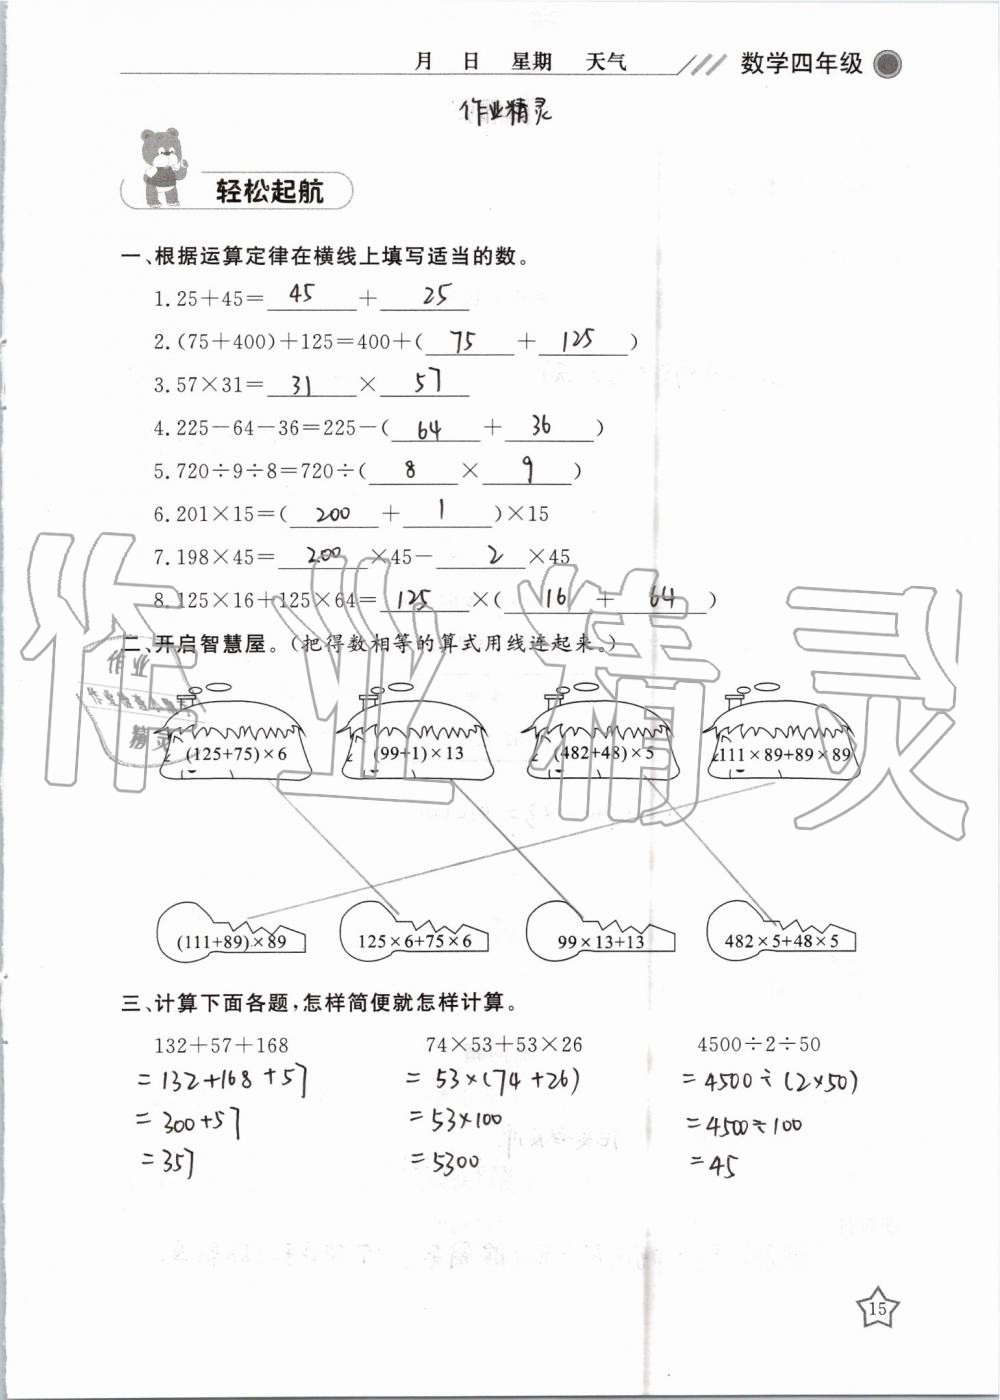 月 日 星期 天气 数学四年级
作业精灵
轻松起航
一、根据运算定律在横线上填写适当的数。
1.25+45= 45 + 25
2.(75+400)+125=400+( 75 + 125 )
3.57×31= 31 × 57
4.225-64-36=225-( 64 + 36 )
5.720÷9÷8=720÷( 8 × 9 )
6.201×15=( 200 + 1 )×15
7.198×45= 200 ×45- 2 ×45
8.125×16+125×64= 125 ×( 16 + 64 )
二、开启智慧屋。(把得数相等的算式用线连起来。)
(125+75)×6 (99+1)×13 (482+48)×5 111×89+89×89
(111+89)×89 125×6+75×6 99×13+13 482×5+48×5
三、计算下面各题,怎样简便就怎样计算。
132+57+168 74×53+53×26 4500÷2÷50
=132+168+57 =53×(74+26) =4500÷(2×50)
=300+57 =53×100 =4500÷100
=357 =5300 =45
15
作业精灵
作业
精灵